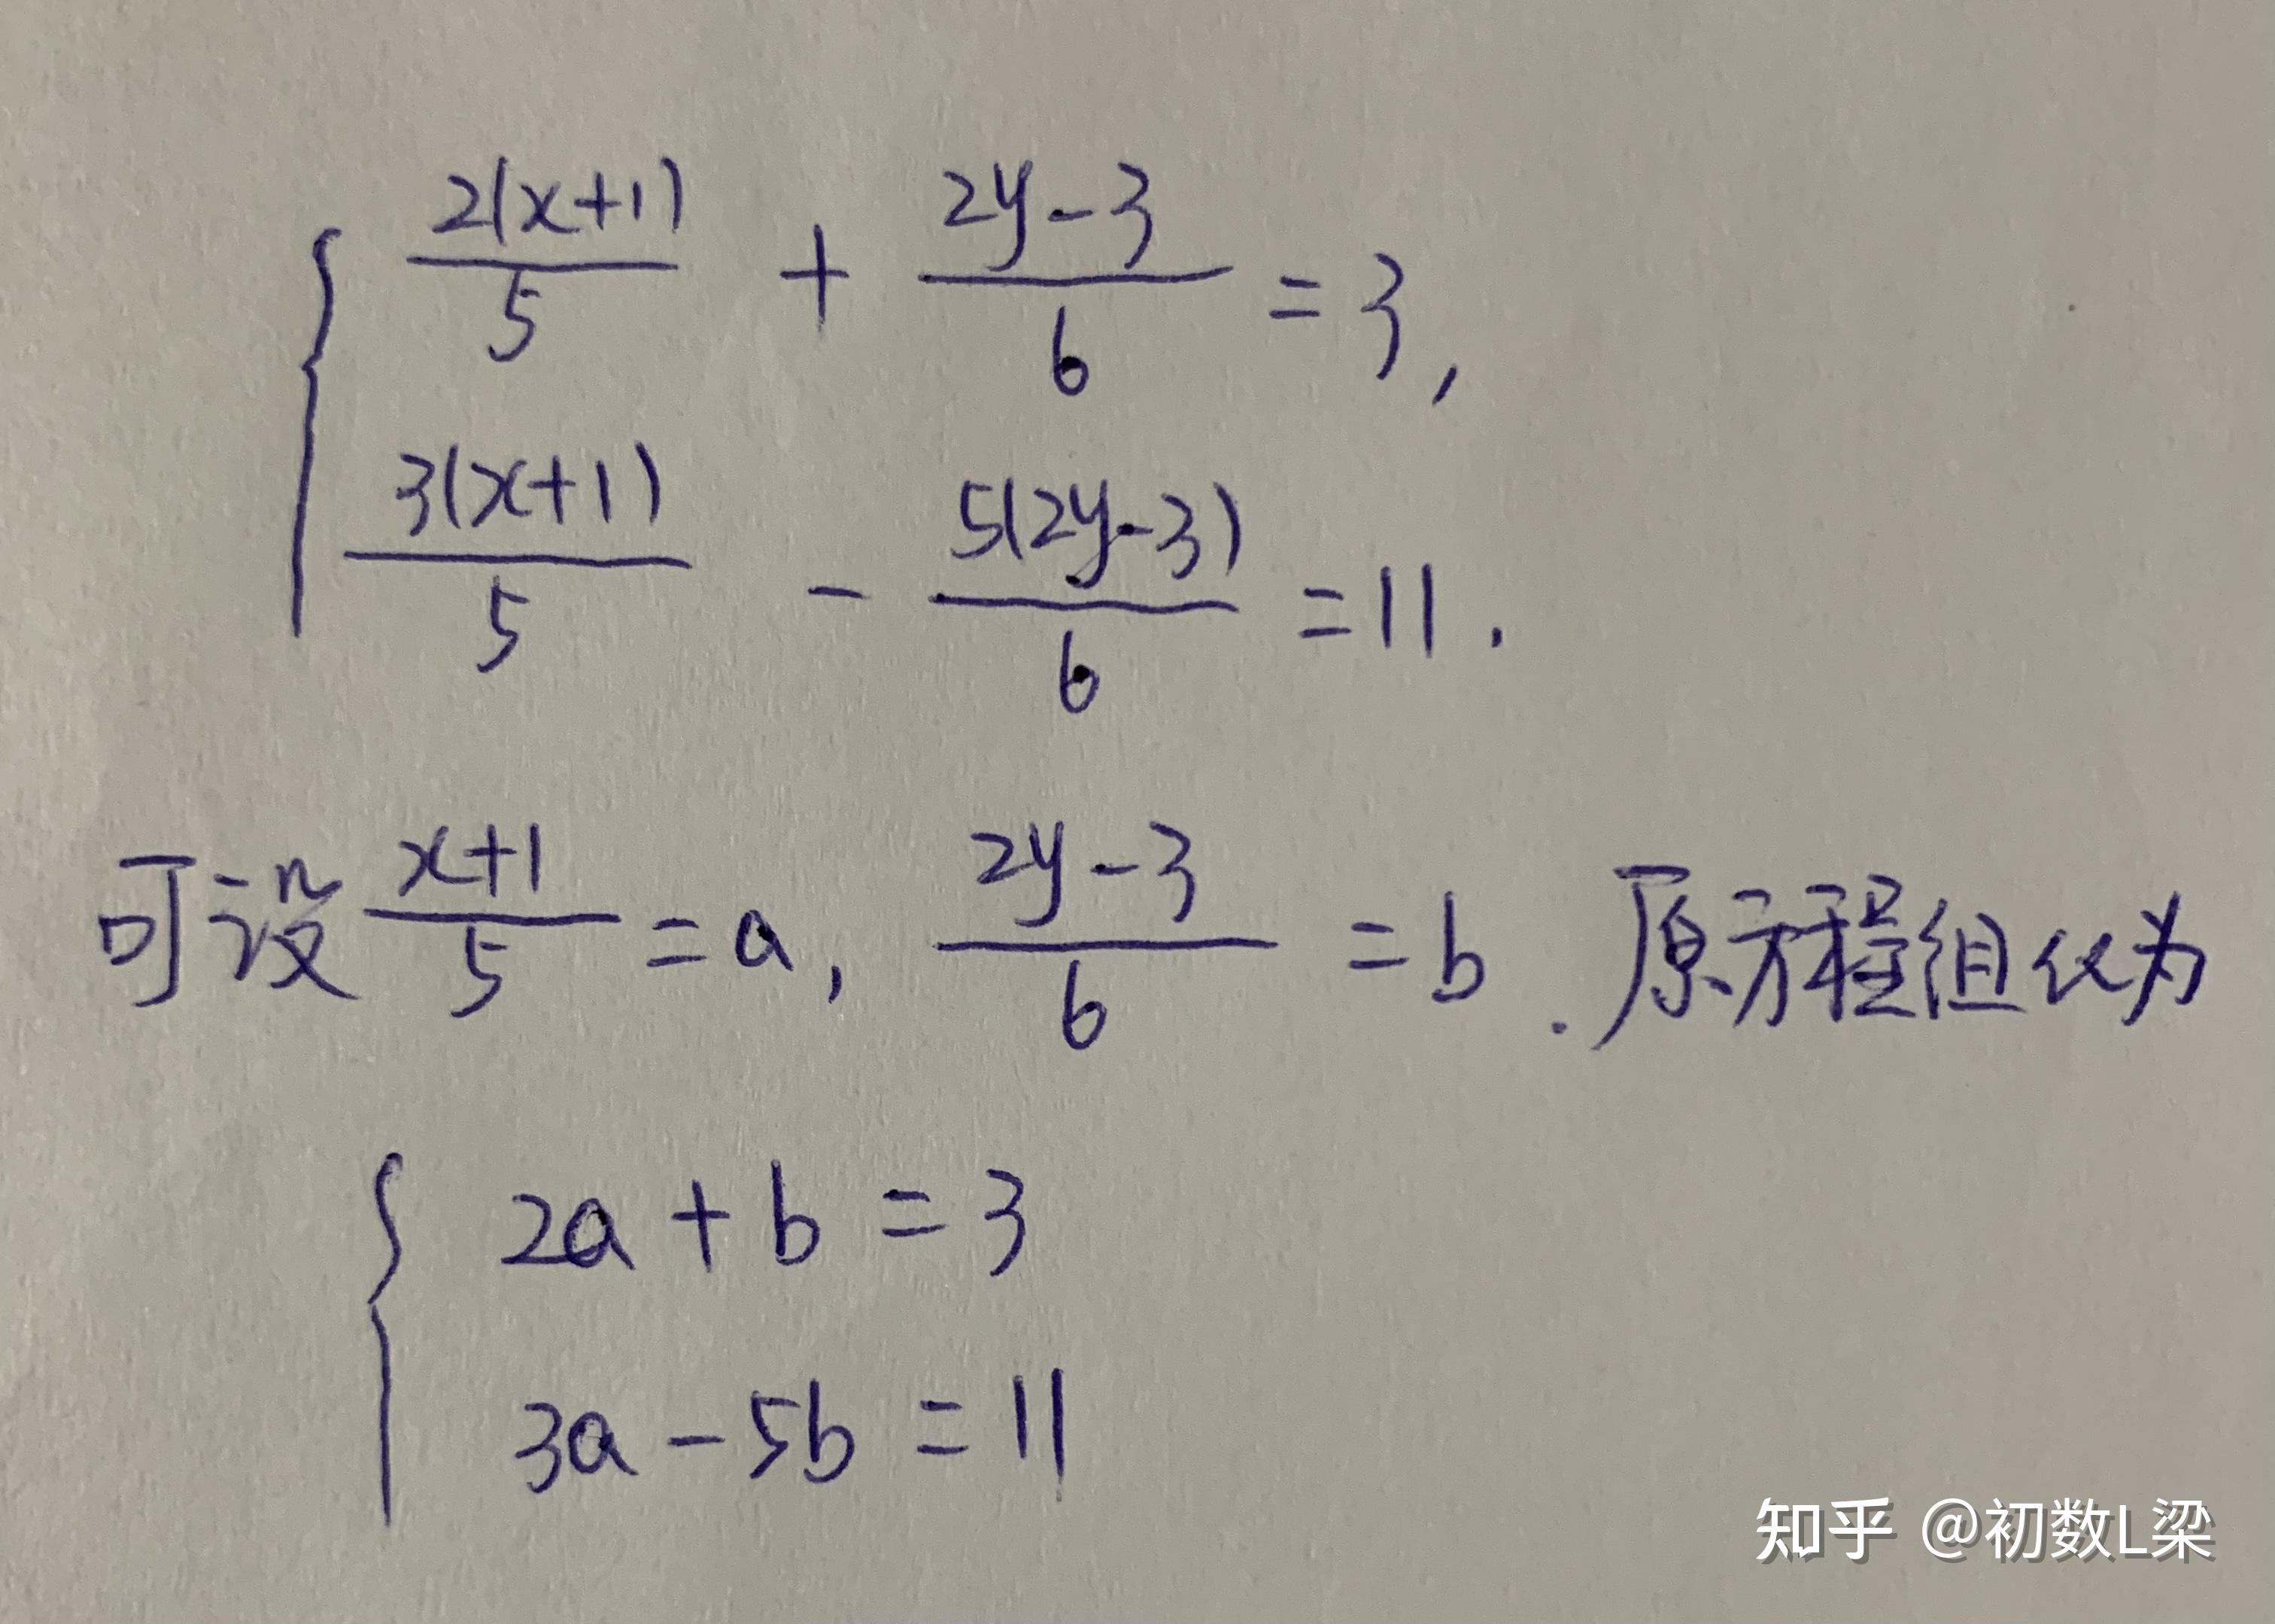 { 2(x+1)/5 + (2y-3)/6 = 3,
3(x+1)/5 - 5(2y-3)/6 = 11.
可设 (x+1)/5 = a, (2y-3)/6 = b. 原方程组化为
{ 2a + b = 3
3a - 5b = 11
知乎 @初数L梁